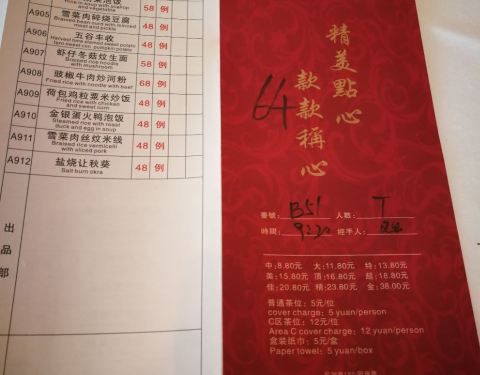 58 例
A905
雪菜肉碎烧豆腐
Braised bean curd with minced
meat and pickle
48 例
A906
五谷丰收
Harvest time steamed sweet potato
taro sweet corn, pumpkin potato
48 例
A907
虾仔冬菇炆生面
Braised rice noodle
with mushroom
58 例
A908
豉椒牛肉炒河粉
Fried rice with noodle with beef
68 例
A909
荷包鸡粒粟米炒饭
Fried rice with chicken
and sweet corn
48 例
A910
金银蛋火鸭泡饭
Steamed rice with roast
duck and egg in soup
48 例
A911
雪菜肉丝炆米线
Braised rice vermicelli
with sliced pork
48 例
A912
盐烧让秋葵
Salt burn okra
48 例
出品部
精美點心
款款稱心
64
臺號: B51 人數: T
時間: 9230 經手人:
中:8.80元 大:11.80元 特:13.80元
美:15.80元 顶:16.80元 超:18.80元
佳:20.80元 精:23.80元 金:38.00元
普通茶位: 5元/位
cover charge: 5 yuan/person
C区茶位: 12元/位
Area C cover charge: 12 yuan/person
盒装纸巾: 5元/盒
Paper towel: 5 yuan/box